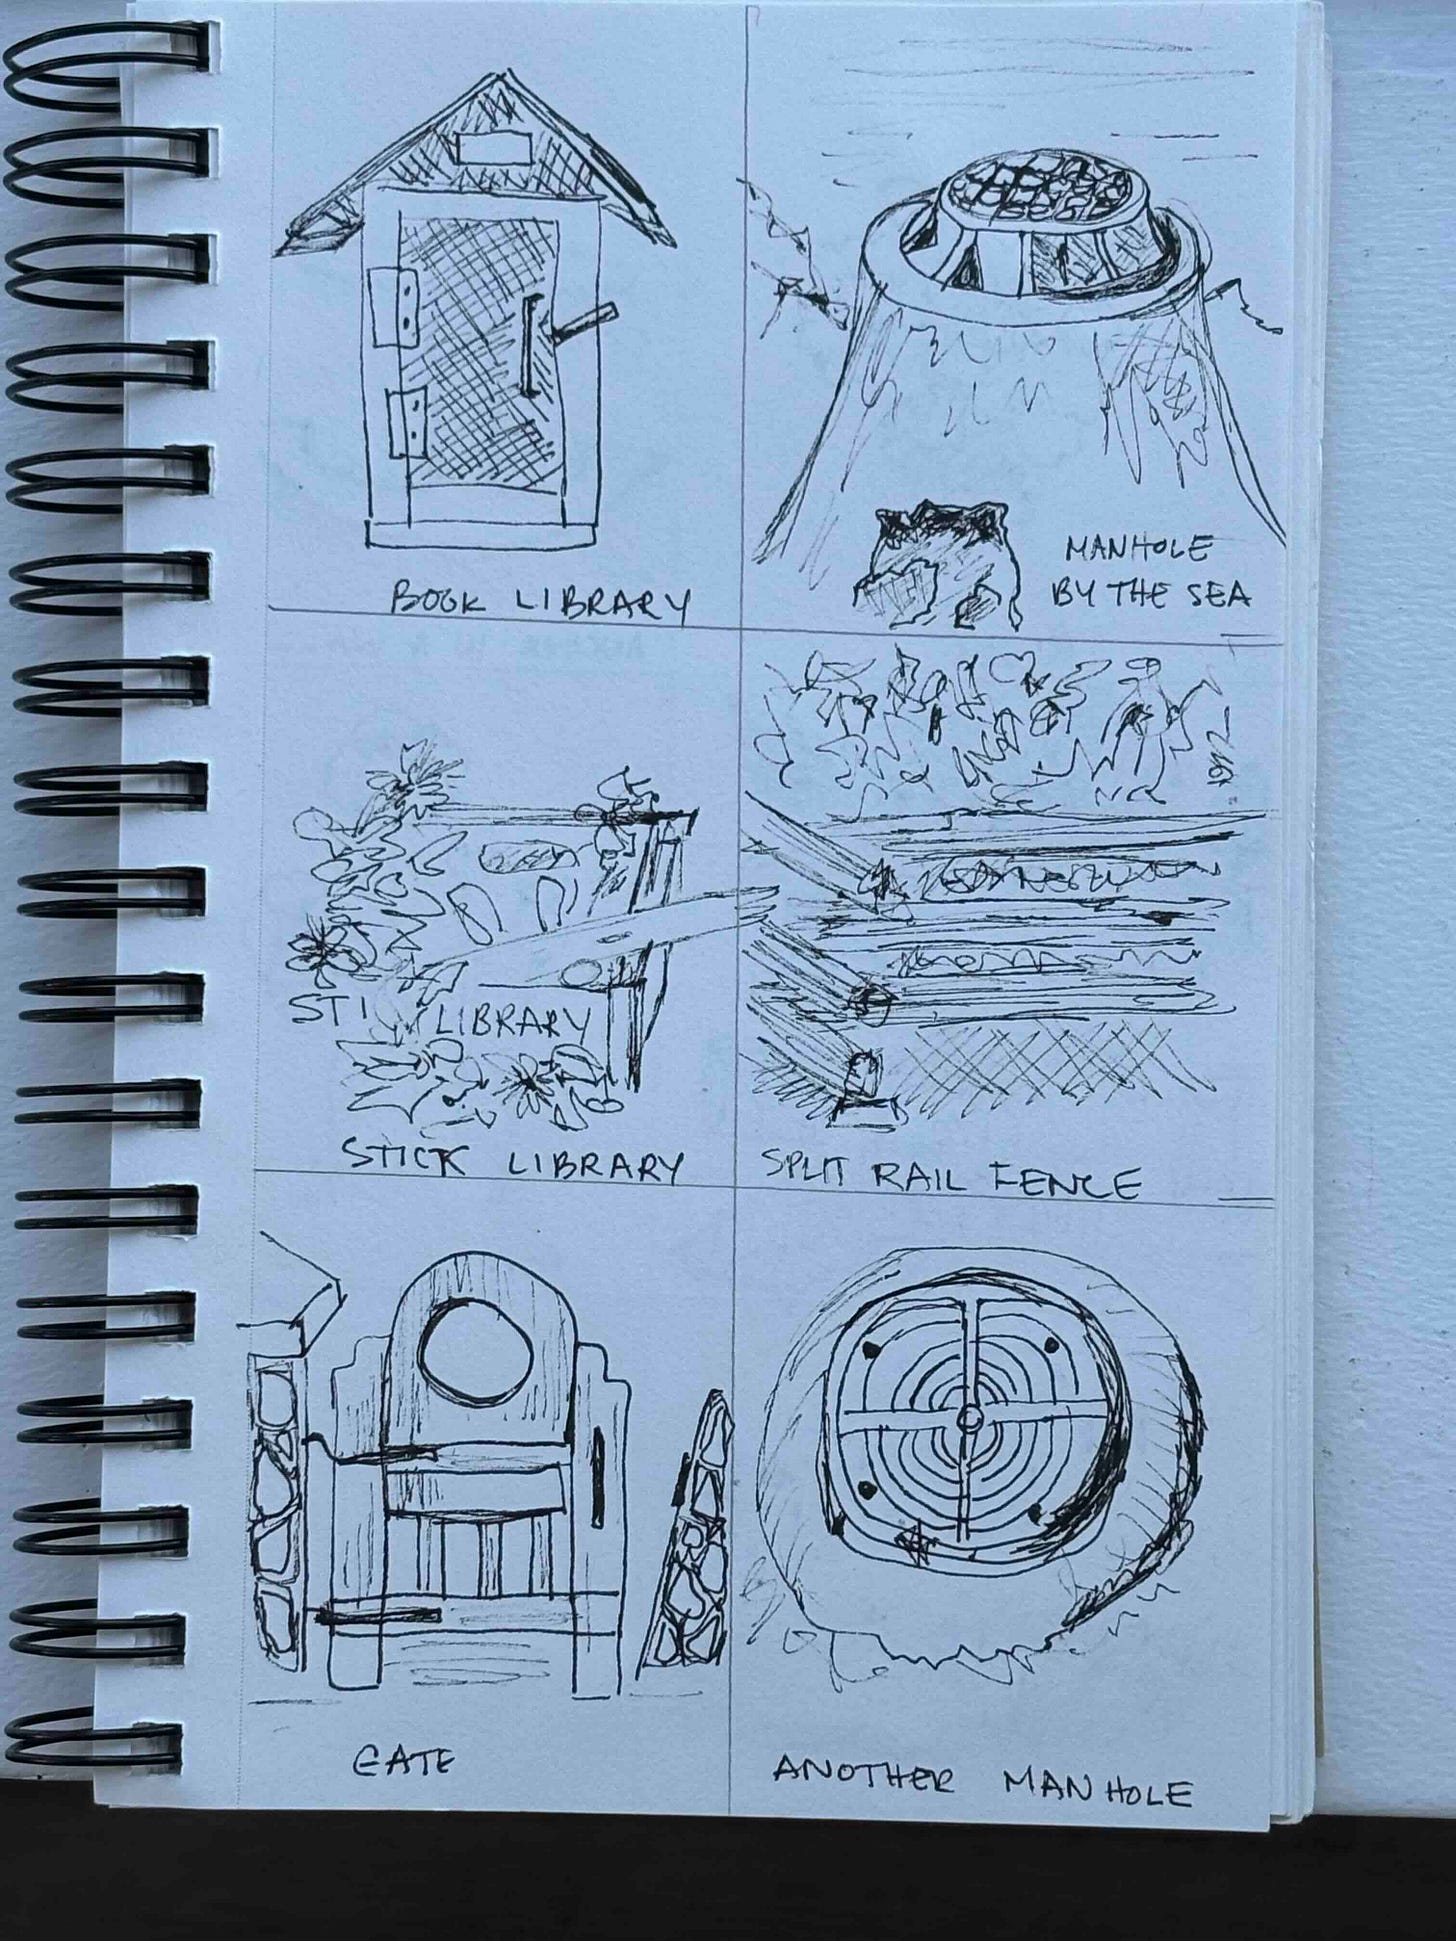 BOOK LIBRARY
MANHOLE
BY THE SEA
STI LIBRARY
STICK LIBRARY
SPLIT RAIL FENCE
GATE
ANOTHER MANHOLE